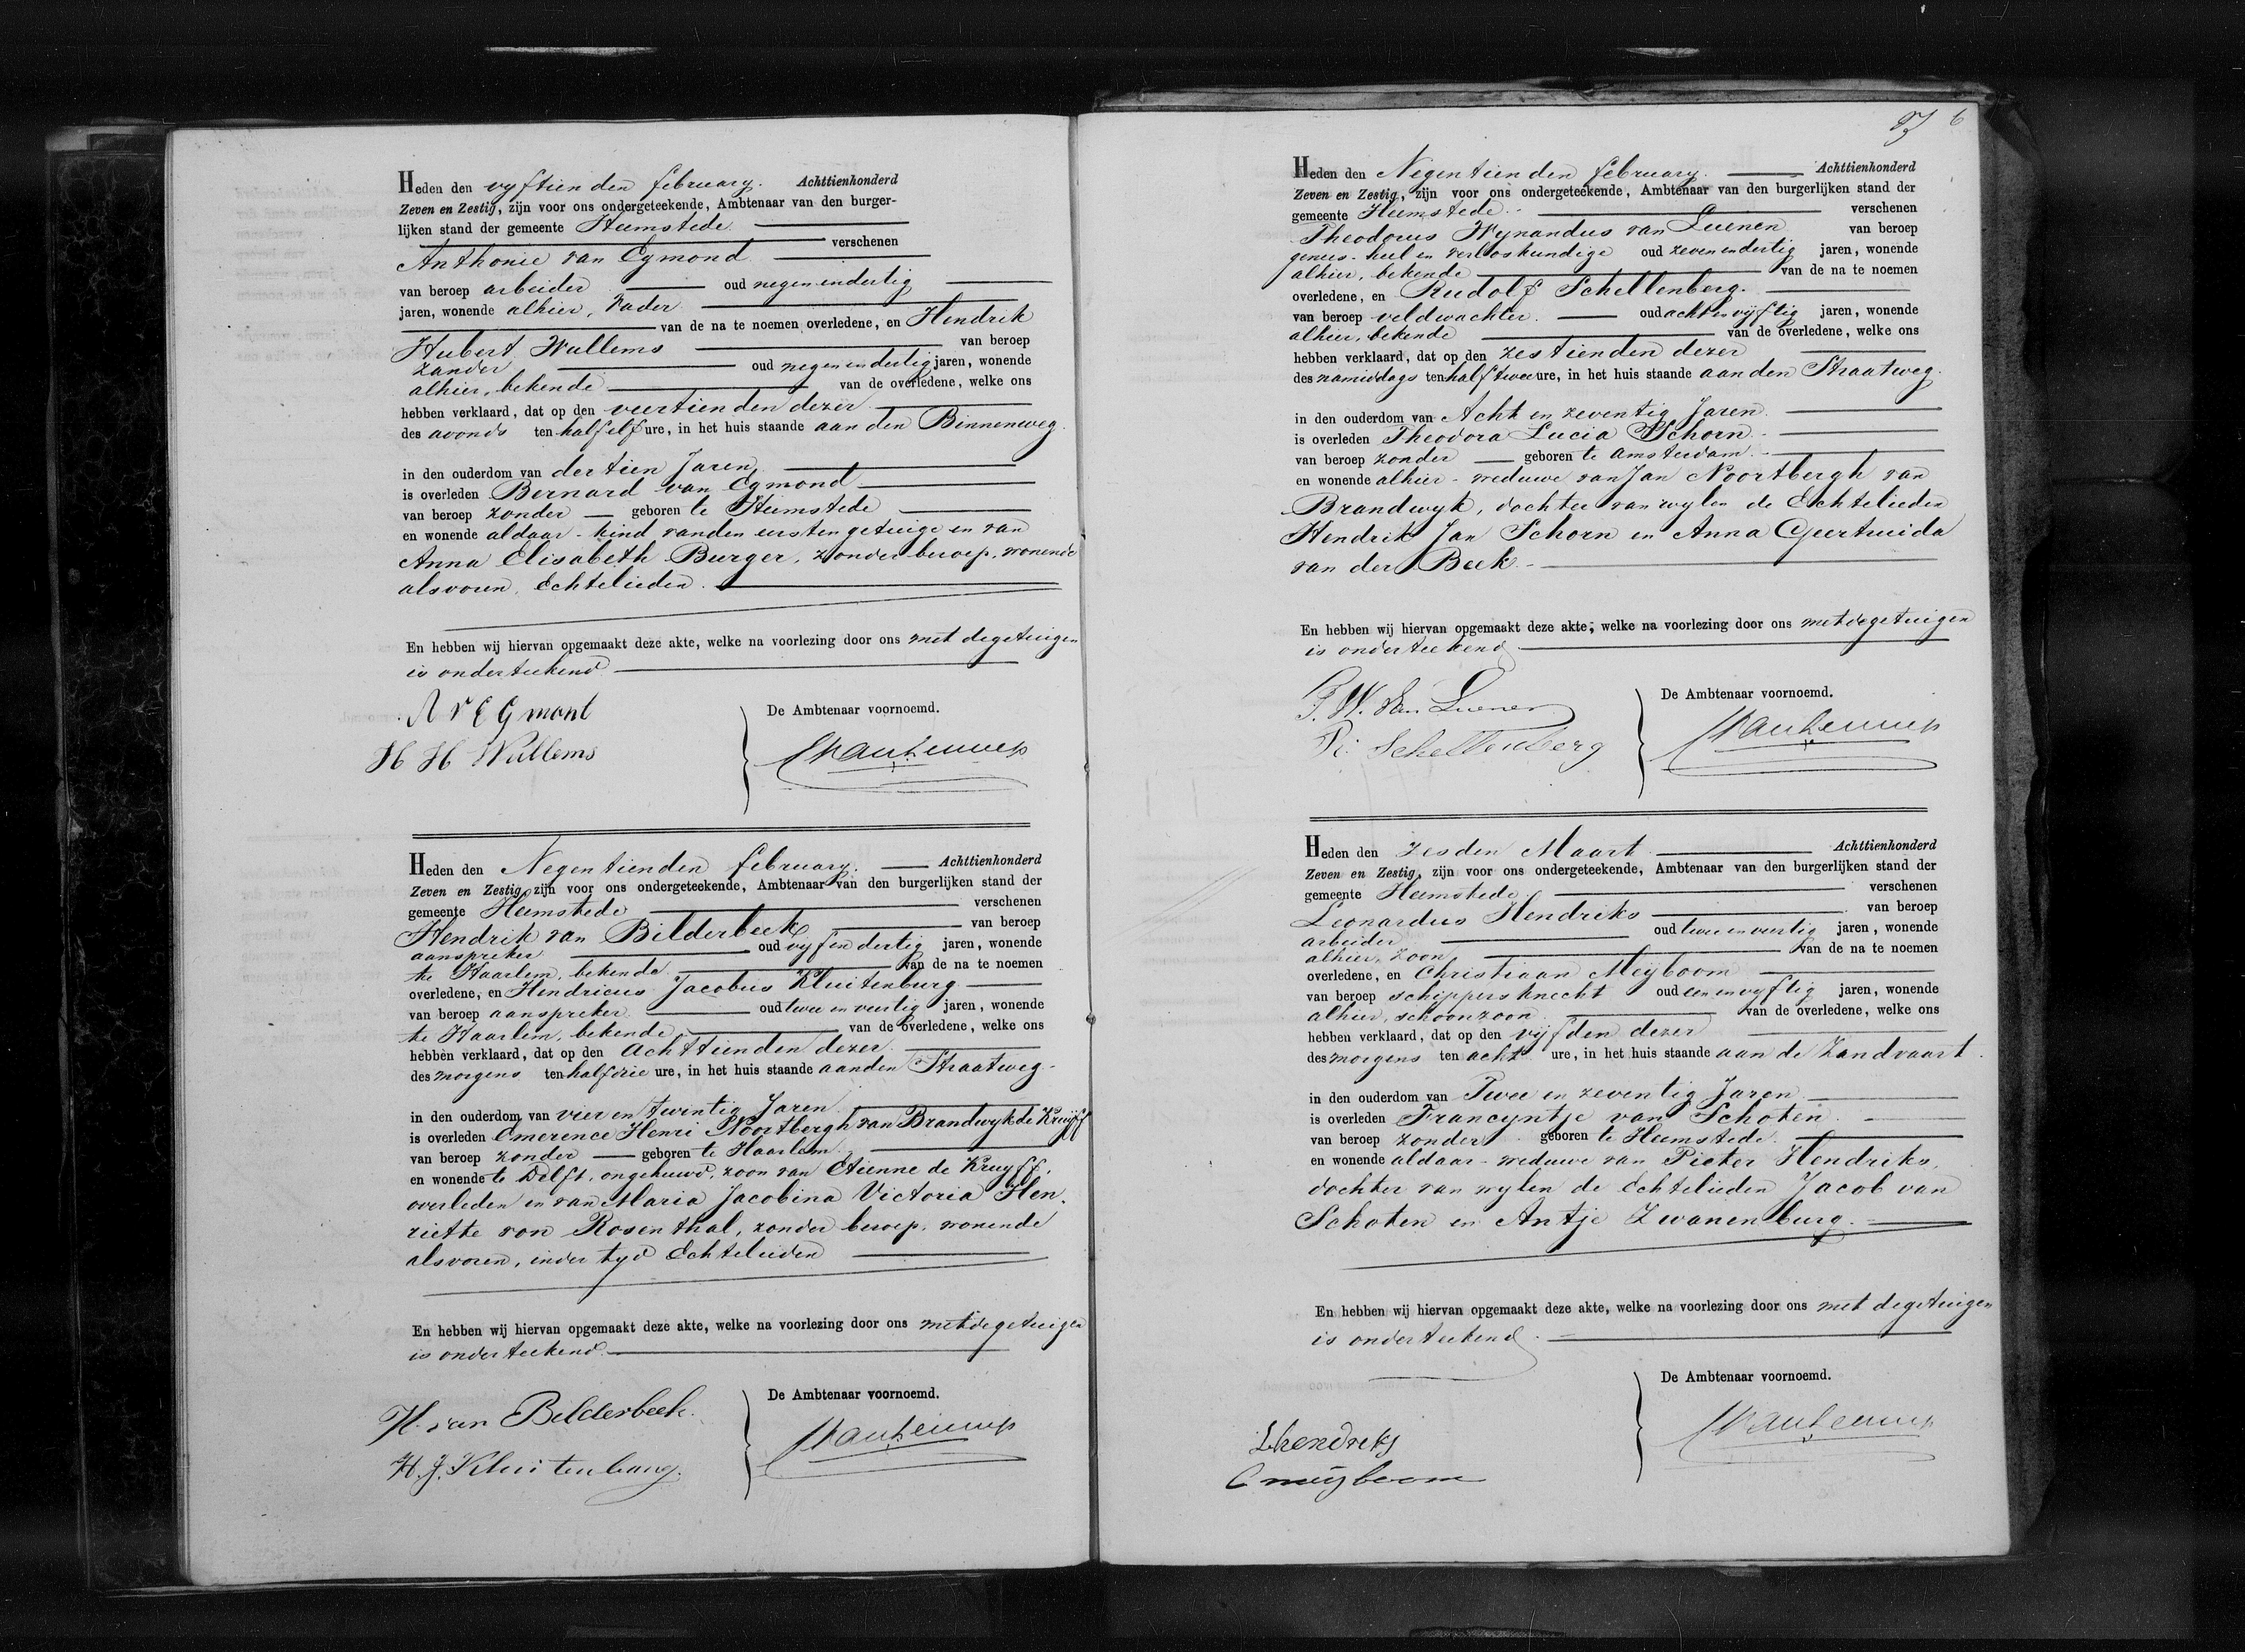 Heden den vyftienden february. Achttienhonderd
Zeven en Zestig, zijn voor ons ondergeteekende, Ambtenaar van den burger-
lijken stand der gemeente Heemstede
verschenen
Anthonie van Egmond
van beroep arbeider oud negenendertig
jaren, wonende alhier, vader
van de na te noemen overledene, en Hendrik
Hubert Wullems van beroep
zonder oud negenendertig jaren, wonende
alhier, bekende van de overledene, welke ons
hebben verklaard, dat op den veertienden dezer
des avonds ten half elf ure, in het huis staande aan den Binnenweg
in den ouderdom van dertien Jaren
is overleden Bernard van Egmond
van beroep zonder geboren te Heemstede
en wonende aldaar - kind van den eersten getuige en van
Anna Elisabeth Burger, zonder beroep, wonende
alsvoren, Echtelieden.
En hebben wij hiervan opgemaakt deze akte, welke na voorlezing door ons met de getuigen
is onderteekend
A v EGmont
H H Wullems
De Ambtenaar voornoemd.
Heden den Negentienden february. Achttienhonderd
Zeven en Zestig, zijn voor ons ondergeteekende, Ambtenaar van den burgerlijken stand der
gemeente Heemstede verschenen
Hendrik van Bilderbeek van beroep
aanspreker oud vyf en dertig jaren, wonende
te Haarlem, bekende van de na te noemen
overledene, en Hendricus Jacobus Kluitenburg
van beroep aanspreker oud twee en veertig jaren, wonende
te Haarlem, bekende van de overledene, welke ons
hebben verklaard, dat op den Achttienden dezer
des morgens ten half drie ure, in het huis staande aan den Straatweg
in den ouderdom van vier en twintig Jaren
is overleden Emerence Henri Noortbergh van Brandwyk de Kruyff
van beroep zonder geboren te Haarlem
en wonende te Delft, ongehuwd, zoon van Etienne de Kruyff,
overleden en van Maria Jacobina Victoria Hen-
riette von Rosenthal, zonder beroep, wonende
alsvoren, inder tyd Echtelieden
En hebben wij hiervan opgemaakt deze akte, welke na voorlezing door ons met de getuigen
is onderteekend
H. van Bilderbeek.
H. J. Kluitenburg.
De Ambtenaar voornoemd.
6
Heden den Negentienden february. Achttienhonderd
Zeven en Zestig, zijn voor ons ondergeteekende, Ambtenaar van den burgerlijken stand der
gemeente Heemstede verschenen
Theodorus Wynandus van Luenen van beroep
genees- heel en verloskundige oud zeven en dertig jaren, wonende
alhier, bekende van de na te noemen
overledene, en Rudolf Schellenberg.
van beroep veldwachter. oud acht en vyftig jaren, wonende
alhier, bekende van de overledene, welke ons
hebben verklaard, dat op den zestienden dezer
des namiddags ten half twee ure, in het huis staande aan den Straatweg.
in den ouderdom van Acht en zeventig Jaren
is overleden Theodora Lucia Schorn
van beroep zonder geboren te Amsterdam
en wonende alhier - weduwe van Jan Noortbergh van
Brandwyk, dochter van wylen de Echtelieden
Hendrik Jan Schorn en Anna Geertruida
van der Beek
En hebben wij hiervan opgemaakt deze akte, welke na voorlezing door ons met de getuigen
is onderteekend
T. W. van Luenen
R: Schellenberg
De Ambtenaar voornoemd.
Heden den zesden Maart Achttienhonderd
Zeven en Zestig, zijn voor ons ondergeteekende, Ambtenaar van den burgerlijken stand der
gemeente Heemstede verschenen
Leonardus Hendriks van beroep
arbeider oud twee en veertig jaren, wonende
alhier, zoon van de na te noemen
overledene, en Christiaan Meyboom
van beroep schippersknecht oud een en vyftig jaren, wonende
alhier, schoonzoon van de overledene, welke ons
hebben verklaard, dat op den vyfden dezer
des morgens ten acht ure, in het huis staande aan de Zandvaart.
in den ouderdom van Twee en zeventig Jaren
is overleden Francyntje van Schoten
van beroep zonder geboren te Heemstede
en wonende aldaar - weduwe van Pieter Hendriks,
dochter van wylen de Echtelieden Jacob van
Schoten en Antje Zwanenburg.
En hebben wij hiervan opgemaakt deze akte, welke na voorlezing door ons met de getuigen
is onderteekend
L hendriks
C meijboom
De Ambtenaar voornoemd.